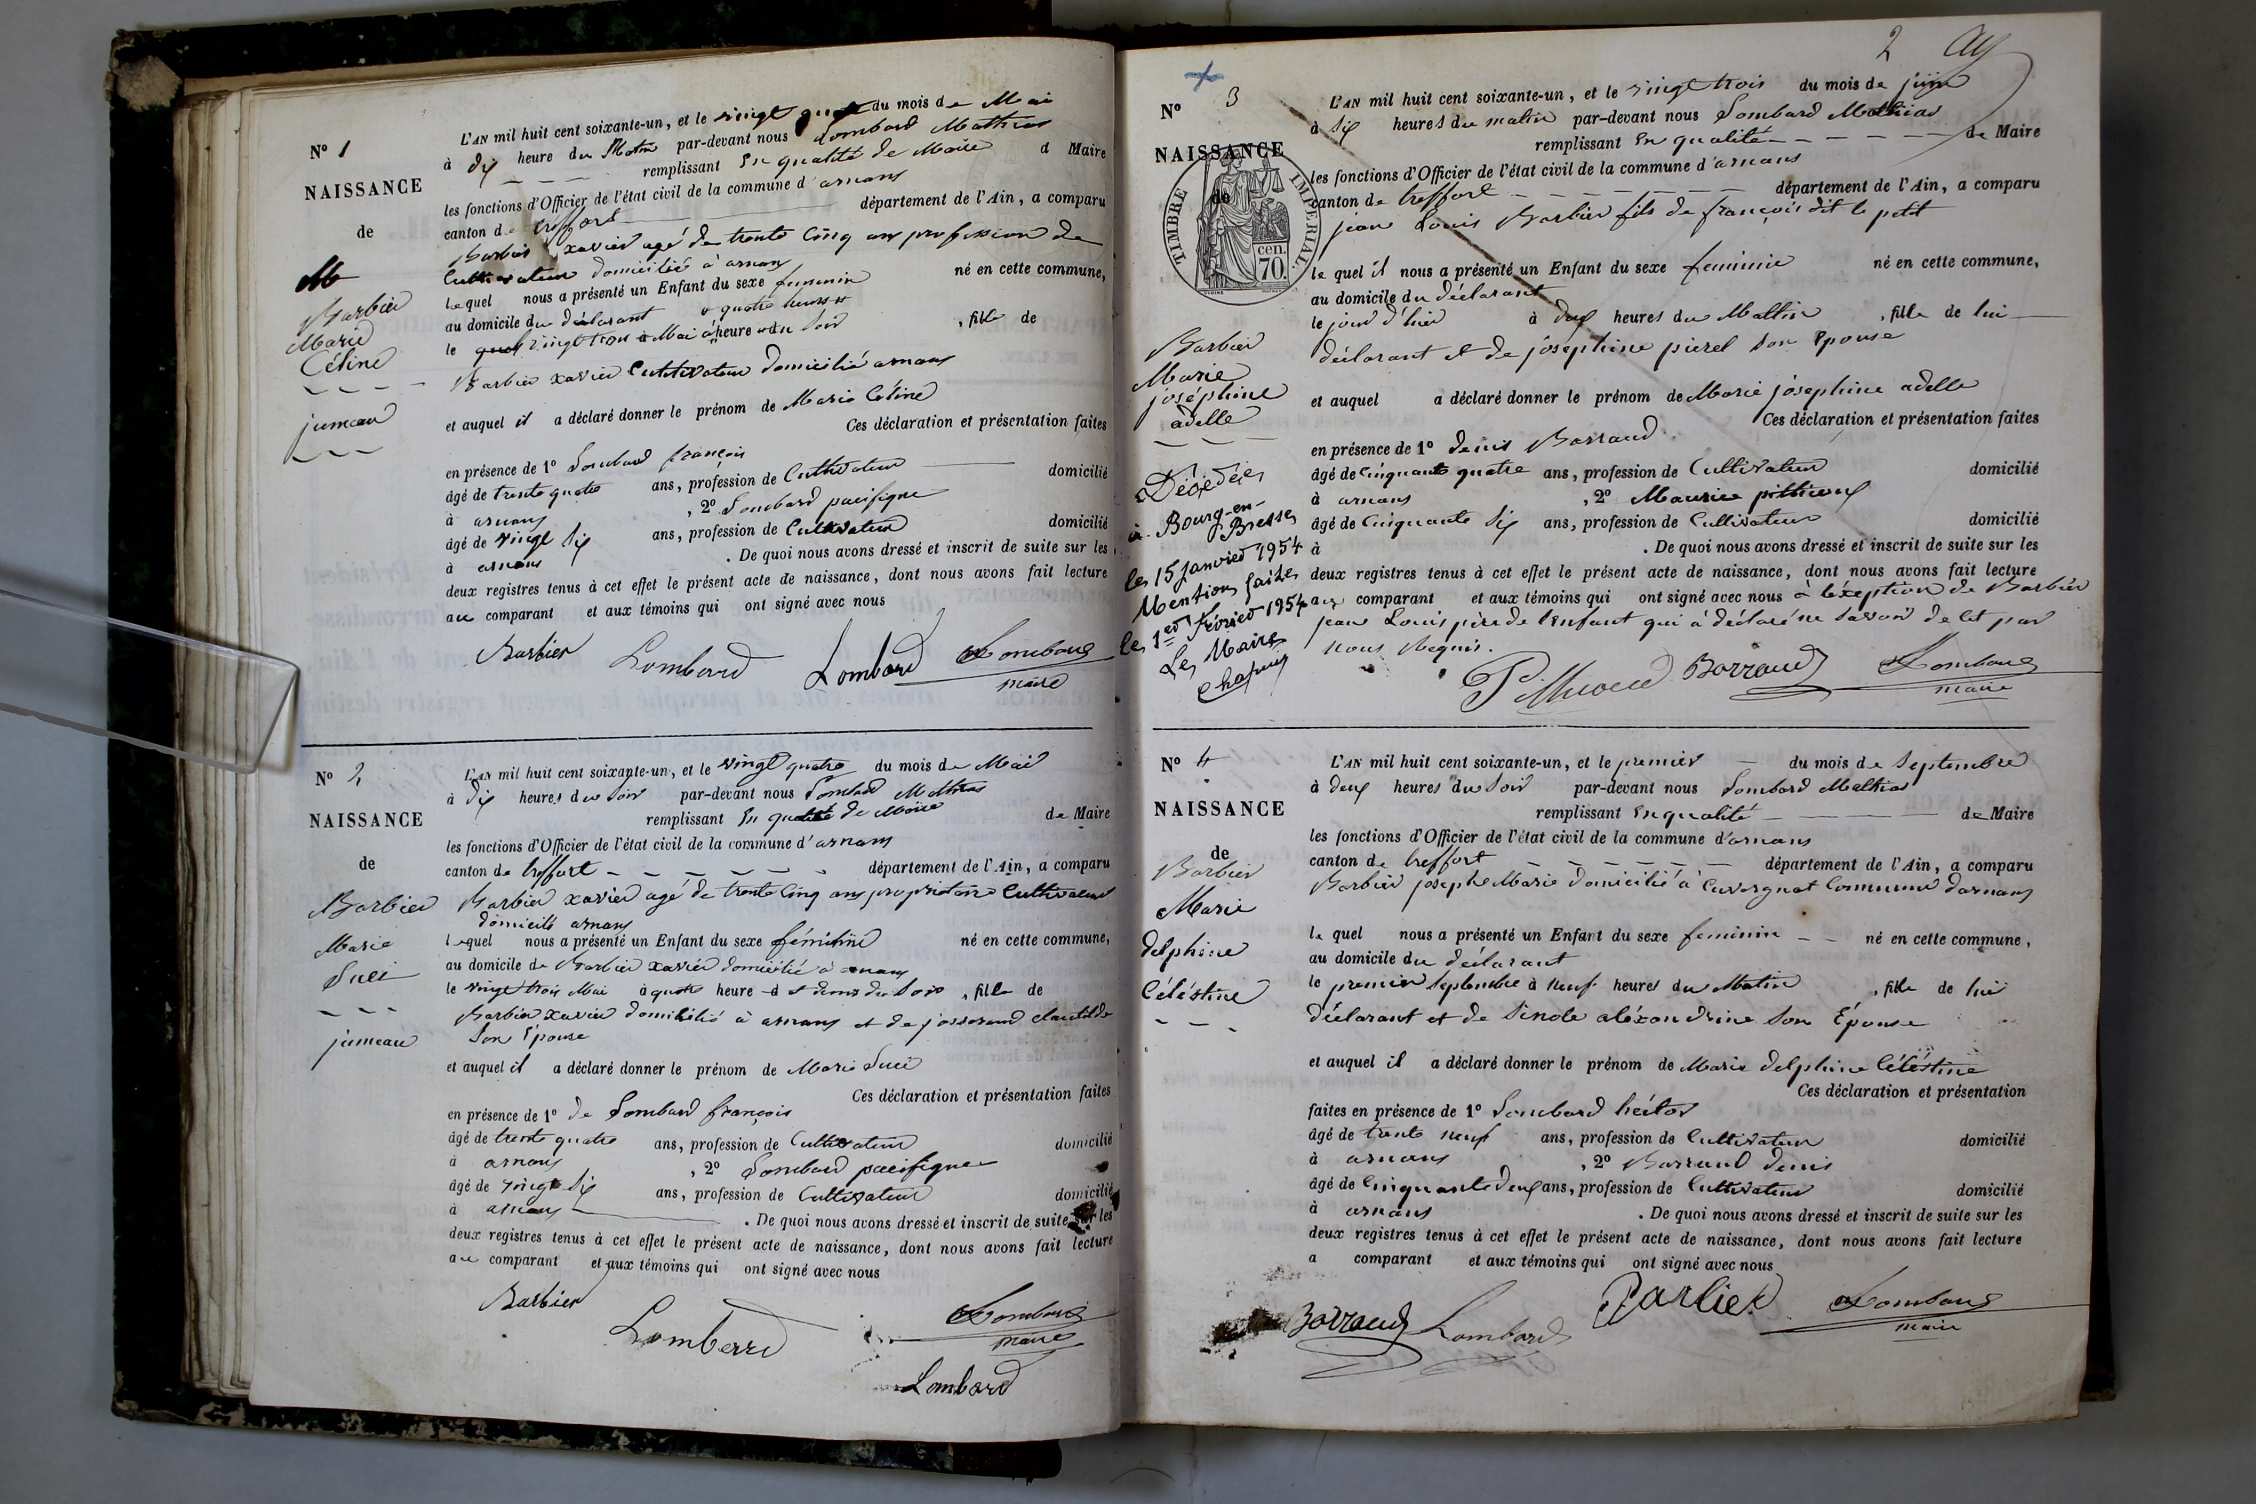 N° 1
NAISSANCE
de
Barbier
Marie
Céline
jumeau
L'AN mil huit cent soixante-un, et le vingt quatre du mois de Mai
à dix heure du Matin par-devant nous Lombard Mathias
remplissant En qualité de Maire d Maire
les fonctions d'Officier de l'état civil de la commune d'arnans
canton de treffort département de l'Ain, a comparu
Barbier xavier agé de trente Cinq ans profession de
Cultivateur domicilié à arnans
lequel nous a présenté un Enfant du sexe feminin né en cette commune,
au domicile du déclarant a quatre heures
le vingt trois Mai à heure du Soir , fille de
Barbier xavier Cultivateur domicilié arnans
et auquel il a déclaré donner le prénom de Marie Céline
Ces déclaration et présentation faites
en présence de 1° Lombard françois
âgé de trente quatre ans, profession de Cultivateur domicilié
à arnans , 2° Lombard pacifique
âgé de vingt six ans, profession de Cultivateur domicilié
à arnans . De quoi nous avons dressé et inscrit de suite sur les
deux registres tenus à cet effet le présent acte de naissance, dont nous avons fait lecture
au comparant et aux témoins qui ont signé avec nous
Barbier Lombard Lombard Lombard
maire
N° 2
NAISSANCE
de
Barbier
Marie
Luci
jumeau
L'AN mil huit cent soixante-un, et le vingt quatre du mois de Mai
à dix heures du Soir par-devant nous Lombard Mathias
remplissant En qualité de Maire de Maire
les fonctions d'Officier de l'état civil de la commune d'arnans
canton de treffort département de l'Ain, a comparu
Barbier xavier agé de trente Cinq ans propriétaire Cultivateur
domicilié arnans
lequel nous a présenté un Enfant du sexe féminin né en cette commune,
au domicile de Barbier xavier domicilié à arnans
le vingt trois Mai à quatre heure et demi du Soir , fille de
Barbier xavier domicilié à arnans et de josserand clautilde
Son Epouse
et auquel il a déclaré donner le prénom de Marie Luci
Ces déclaration et présentation faites
en présence de 1° de Lombard françois
âgé de trente quatre ans, profession de Cultivateur domicilié
à arnans , 2° Lombard pacifique
âgé de vingt six ans, profession de Cultivateur domicilié
à arnans . De quoi nous avons dressé et inscrit de suite sur les
deux registres tenus à cet effet le présent acte de naissance, dont nous avons fait lecture
au comparant et aux témoins qui ont signé avec nous
Barbier Lomberd Lombard
maire
Lombard
2
N° 3
NAISSANCE
de
TIMBRE IMPERIAL.
cen.
70.
Barbier
Marie
joséphine
adelle
Décédée
à Bourg-en-
Bresse
le 15 janvier 1954
Mention faite
le 1er Février 1954
Le Maire
L'AN mil huit cent soixante-un, et le vingt trois du mois de juin
à six heures du matin par-devant nous Lombard Mathias
remplissant En qualité de Maire
les fonctions d'Officier de l'état civil de la commune d'arnans
canton de treffort département de l'Ain, a comparu
jean Louis Barbier fils de françois dit le petit
le quel il nous a présenté un Enfant du sexe feminin né en cette commune,
au domicile du déclarant
le jour d'hier à deux heures du Mattin , fille de lui
déclarant et de josephine pierel Son Epouse
et auquel a déclaré donner le prénom de Marie josephine adelle
Ces déclaration et présentation faites
en présence de 1° denis Barraud
âgé de Cinquante quatre ans, profession de Cultivateur domicilié
à arnans , 2° Maurice
âgé de Cinquante six ans, profession de Cultivateur domicilié
à . De quoi nous avons dressé et inscrit de suite sur les
deux registres tenus à cet effet le présent acte de naissance, dont nous avons fait lecture
au comparant et aux témoins qui ont signé avec nous à l'éxeption de Barbier
jean Louis père de l'enfant qui a déclaré ne savoir de cet par
nous Requis.
Borraud Lombard
maire
N° 4
NAISSANCE
de
Barbier
Marie
delphine
Céléstine
L'AN mil huit cent soixante-un, et le premier du mois de Septembre
à deux heures du Soir par-devant nous Lombard Mathias
remplissant En qualité de Maire
les fonctions d'Officier de l'état civil de la commune d'arnans
canton de treffort département de l'Ain, a comparu
Barbier josephe Marie domicilié à Cuvergnat Commune d'arnans
le quel nous a présenté un Enfant du sexe feminin né en cette commune,
au domicile du déclarant
le premier Septembre à neuf heures du Matin , fille de lui
déclarant et de Sinole aléxandrine Son Épouse
et auquel il a déclaré donner le prénom de Marie delphine Céléstine
Ces déclaration et présentation
faites en présence de 1° Lombard héctor
âgé de trente neuf ans, profession de Cultivateur domicilié
à arnans , 2° Barraud denis
âgé de Cinquante deux ans, profession de Cultivateur domicilié
à arnans . De quoi nous avons dressé et inscrit de suite sur les
deux registres tenus à cet effet le présent acte de naissance, dont nous avons fait lecture
a comparant et aux témoins qui ont signé avec nous
Borraud Lombard Barbier Lombard
maire